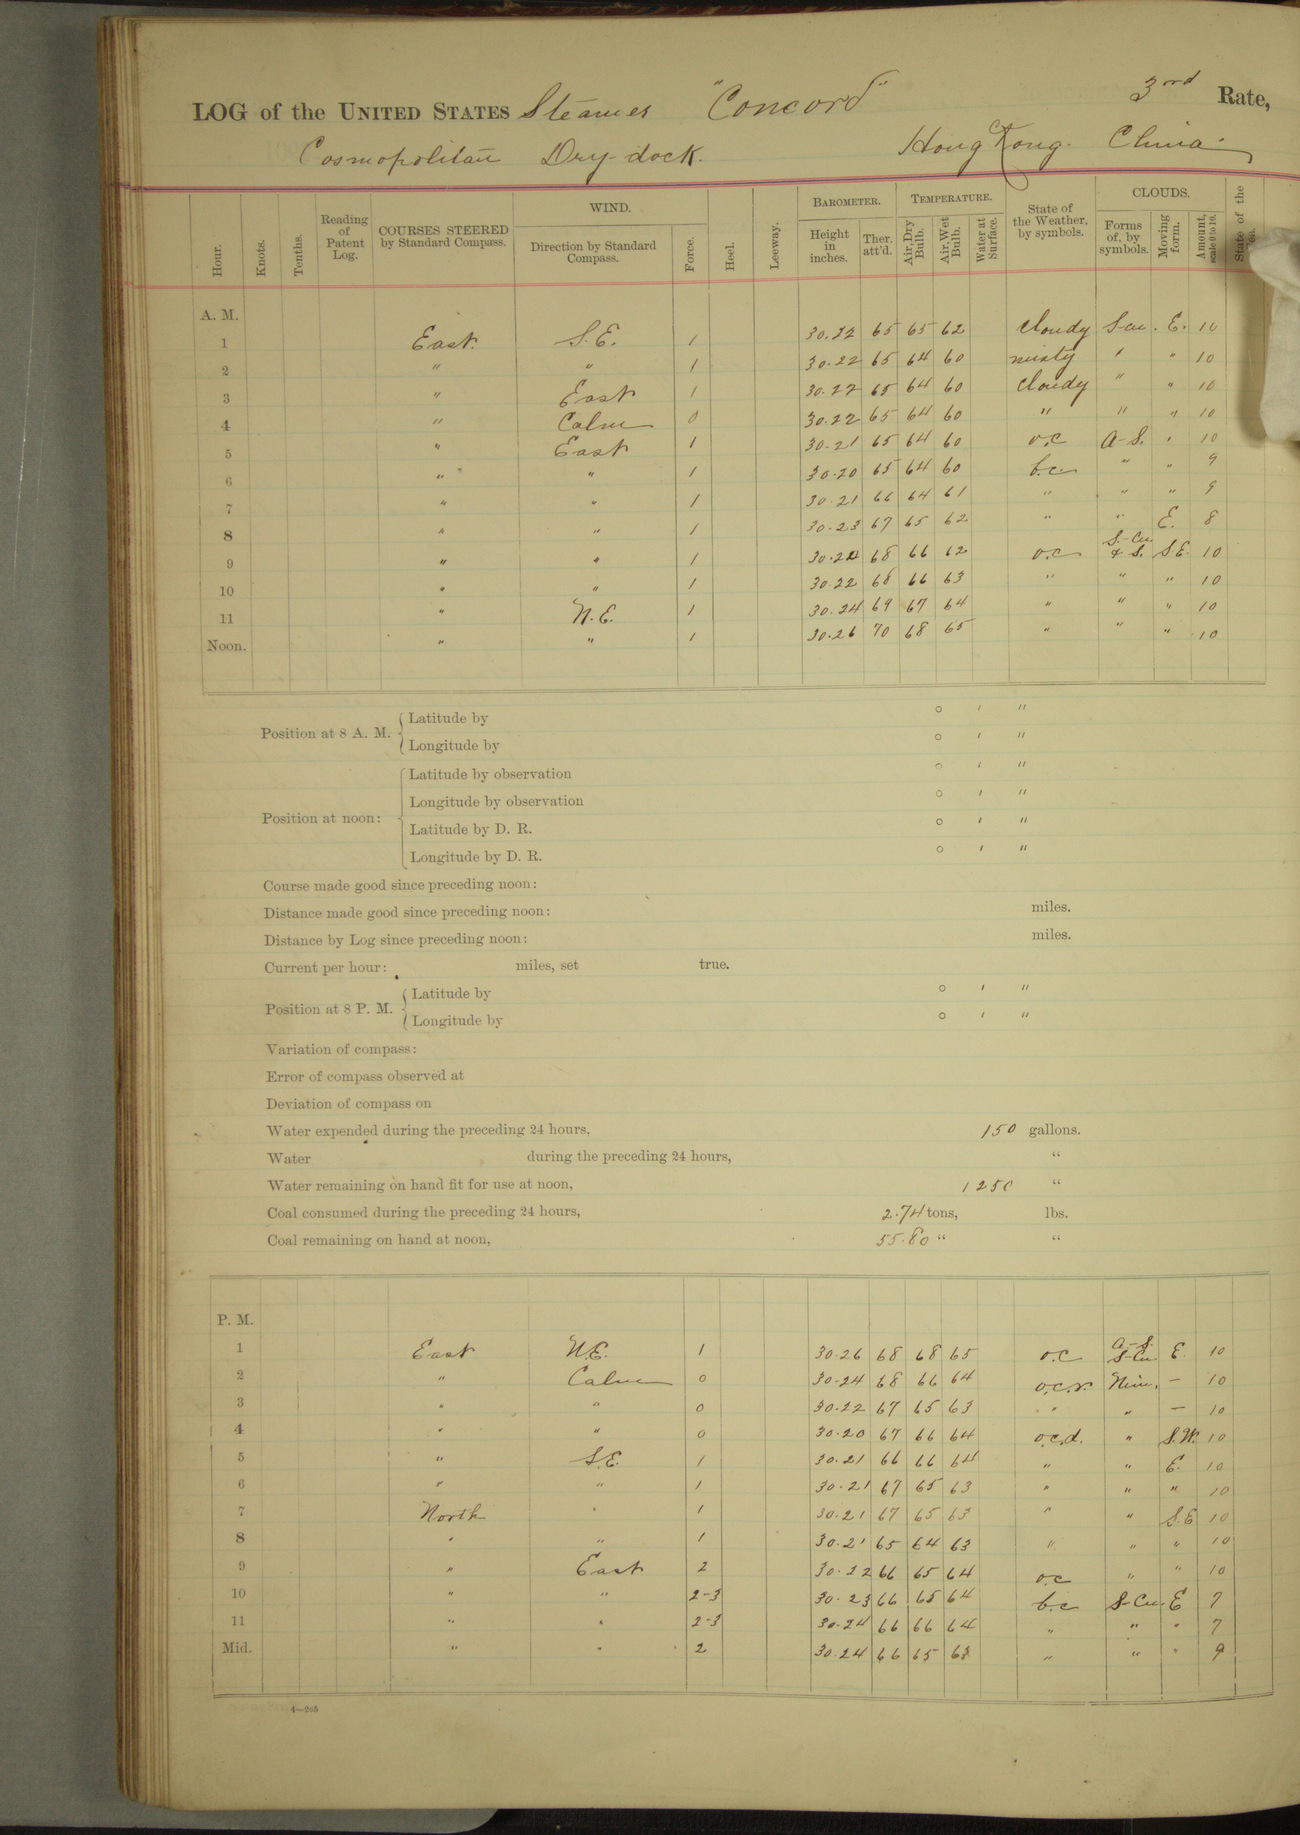 LOG of the UNITED STATES Steamer "Concord" 3rd Rate,
Cosmopolitan Dry-dock. Hong Kong. China.
Hour. Knots. Tenths. Reading of Patent Log. COURSES STEERED by Standard Compass. WIND. Direction by Standard Compass. Force. Heel. Leeway. BAROMETER. Height in inches. Ther. att'd. TEMPERATURE. Air, Dry Bulb. Air, Wet Bulb. Water at Surface. State of the Weather, by symbols. CLOUDS. Forms of, by symbols. Moving form. Amount, scale 0 to 10. State of the
A. M.
1 East. S.E. 1 30.22 65 65 62 cloudy S-cu. E. 10
2 " " 1 30.22 65 64 60 misty " " 10
3 " East 1 30.22 65 64 60 cloudy " " 10
4 " Calm 0 30.22 65 64 60 " " " 10
5 " East 1 30.21 65 64 60 o.c A-S. " 10
6 " " 1 30.20 65 64 60 b.c. " " 9
7 " " 1 30.21 66 64 61 " " " 9
8 " " 1 30.23 67 65 62 " " E. 8
9 " " 1 30.24 68 66 62 o.c S.-Cu. & S. S.E. 10
10 " " 1 30.22 68 66 63 " " " 10
11 " N.E. 1 30.24 69 67 64 " " " 10
Noon. " " 1 30.26 70 68 65 " " " 10
Position at 8 A. M. Latitude by ° ' "
Longitude by ° ' "
Position at noon: Latitude by observation ° ' "
Longitude by observation ° ' "
Latitude by D. R. ° ' "
Longitude by D. R. ° ' "
Course made good since preceding noon:
Distance made good since preceding noon: miles.
Distance by Log since preceding noon: miles.
Current per hour: miles, set true.
Position at 8 P. M. Latitude by ° ' "
Longitude by ° ' "
Variation of compass:
Error of compass observed at
Deviation of compass on
Water expended during the preceding 24 hours, 150 gallons.
Water during the preceding 24 hours, "
Water remaining on hand fit for use at noon, 1250 "
Coal consumed during the preceding 24 hours, 2.74 tons, lbs.
Coal remaining on hand at noon, 55.80 " "
P. M.
1 East N.E. 1 30.26 68 68 65 o.c A-S. S-Cu. E. 10
2 " Calm 0 30.24 68 66 64 o.c.r. Nim. — 10
3 " " 0 30.22 67 65 63 " " — 10
4 " " 0 30.20 67 66 64 o.c.d. " S.W. 10
5 " S.E. 1 30.21 66 66 64 " " E. 10
6 " " 1 30.21 67 65 63 " " " 10
7 North " 1 30.21 67 65 63 " " S.E 10
8 " " 1 30.21 65 64 63 " " " 10
9 " East 2 30.22 66 65 64 o.c " " 10
10 " " 2-3 30.23 66 65 64 b.c S-Cu. E 7
11 " " 2-3 30.24 66 66 64 " " " 7
Mid. " " 2 30.24 66 65 63 " " " 9
4—205